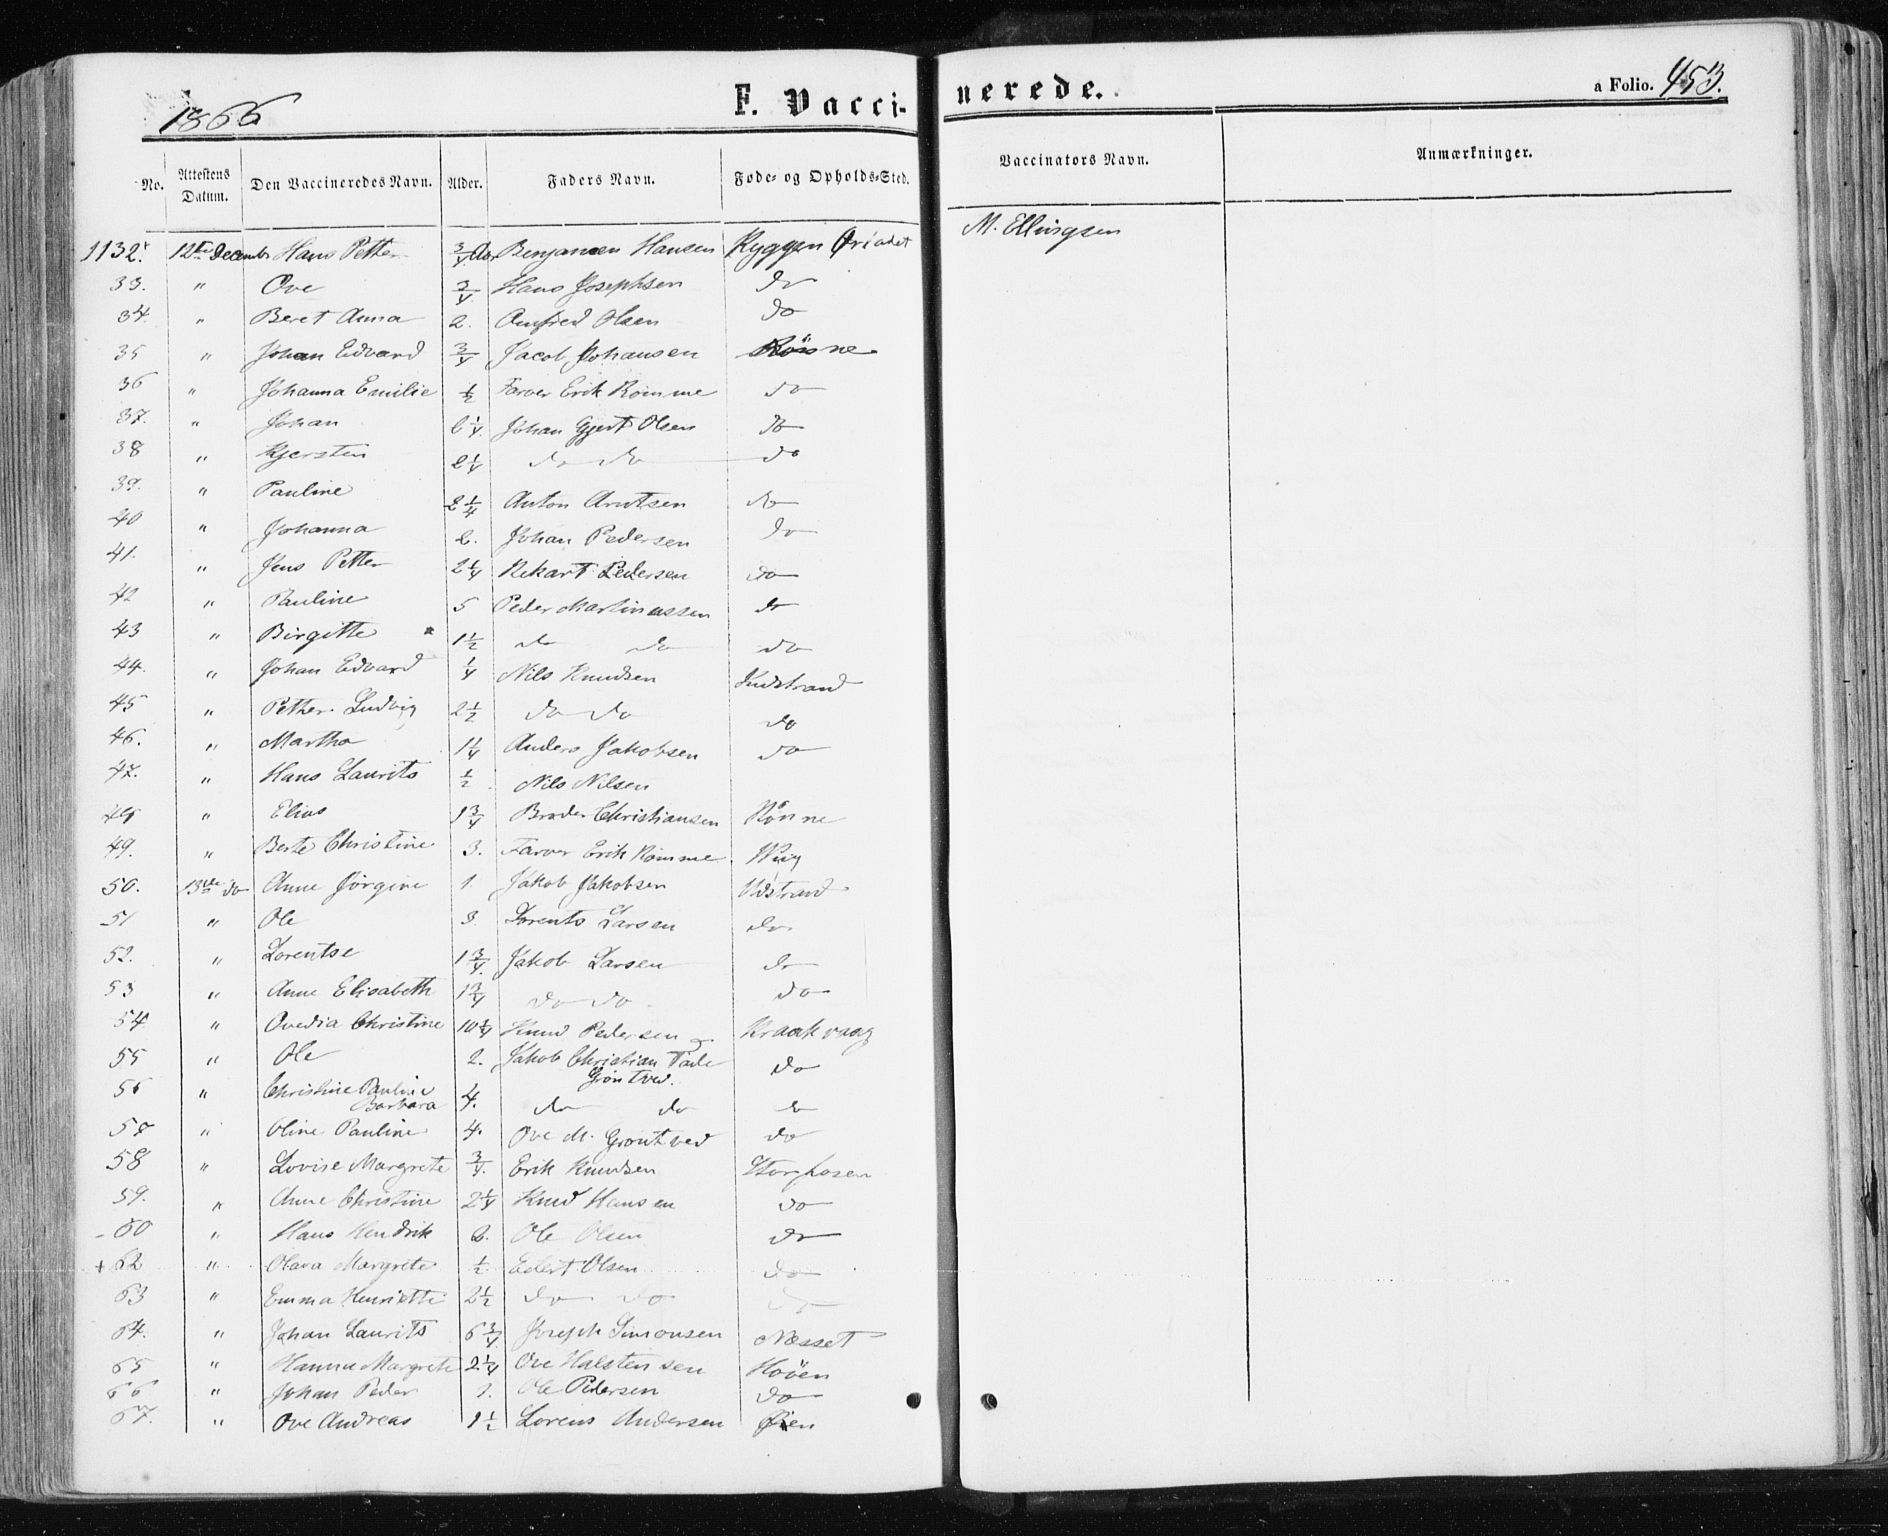 1866 F. Vaccinerede. a Folio. 453.
No. Attestens Datum. Den Vaccineredes Navn. Alder. Faders Navn. Føde- og Opholds-Sted. Vaccinators Navn. Anmærkninger.
1132. 12te Decembr Hans Petter 3/4 Aar Benjamen Hansen Ryggen M. Ellingsen
33. " Ove 3/4 Hans Josephsen do
34. " Beret Anna 2. Amfred Olsen do
35 " Johan Edvard 3/4 Jacob Johansen Rönne
36 " Johanna Emilie 1/2 Farver Erik Romme do
37. " Johan 2 1/4 Johan Gjert Olsen do
38 " Kjersten 2 1/4 do do do
39. " Pauline 2 1/4 Anton Arntsen do
40 " Johanna 2. Johan Pedersen do
41. " Jens Petter 2 1/4 Rekart Pedersen do
42 " Pauline 5 Peder Martinussen do
43 " Birgitte 1 1/2 do do do
44. " Johan Edvard 1/4 Nils Knudsen Indstrand
45 " Pether Ludvig 2 1/2 do do do
46. " Martha 1 1/4 Anders Jakobsen do
47. " Hans Laurits 1/2 Nils Nilsen
48 " Elias 1 3/4 Broder Christiansen Rönne
49. " Berte Christine 3. Farver Erik Romme
50. 13de do Anne Jørgine 1. Jakob Jakobsen Udstrand
51 " Ole 3. Lorents Larsen do
52. " Lorentse 1 3/4 Jakob Larsen do
53 " Anne Elisabeth 1 3/4 do do do
54 " Ovedia Christine 10 3/4 Knud Pedersen Kraakvaag
55 " Ole 2. Jakob Christian
Gröntved. do
56 " Christine Pauline
Barbara 4. do do do
57 " Oline Pauline 4. Ove M. Gröntved do
58 " Lovise Margrete 3/4. Erik Knudsen Storfosen
59. " Anne Christine 2 1/4 Knud Hansen do
60 " Hans Hendrik 2. Ole Olsen do
+ 62 " Olava Margrete 1/2 Edert Olsen do
63 " Emma Henriette 2 1/2 do do do
64. " Johan Laurits 6 3/4 Joseph Simonsen Næsset
65 " Hanna Margrete 2 1/4 Ove Halstensen Höien
66 " Johan Peder 1. Ole Pedersen do
67. " Ove Andreas 1 1/2 Lorens Andersen Øien